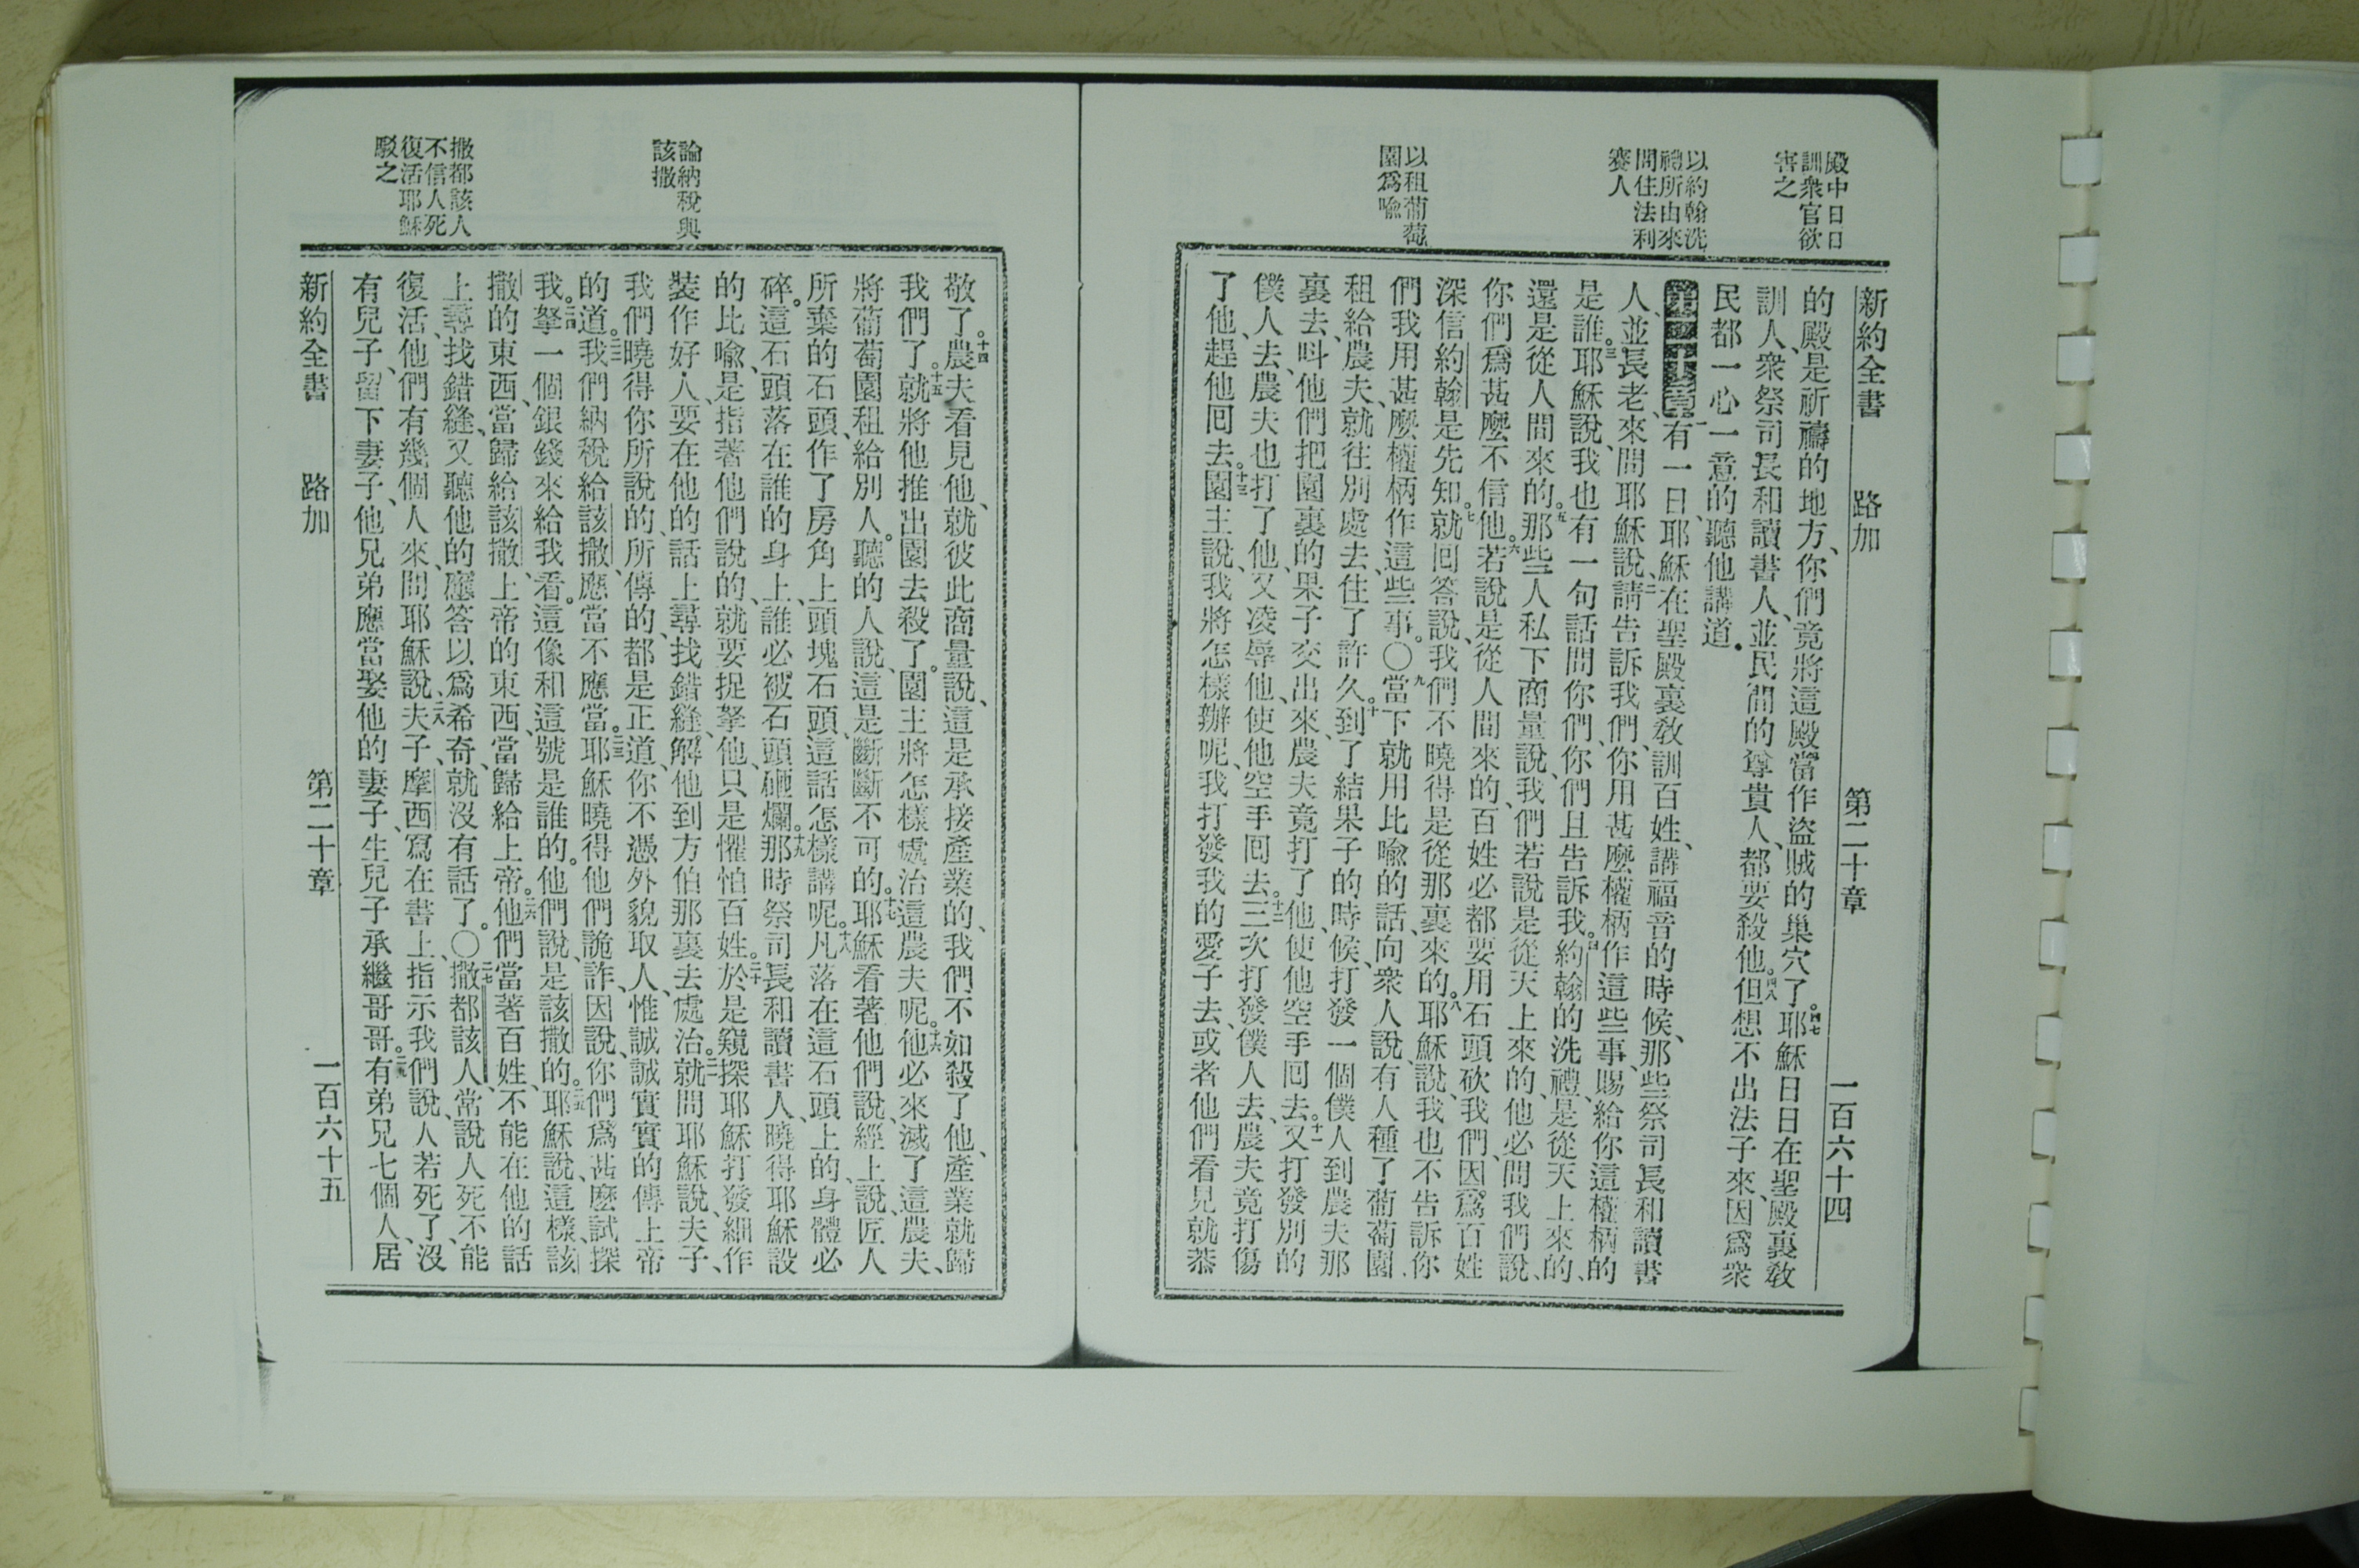 殿中日日
訓衆官欲
害之
以約翰洗
禮所由來
問住法利
賽人
以租葡萄
園爲喩
新約全書 路加 第二十章 一百六十四
的殿、是祈禱的地方、你們竟將這殿當作盜賊的巢穴了。四七耶穌日日在聖殿裏敎
訓人、衆祭司長和讀書人、並民間的尊貴人、都要殺他。四八但想不出法子來、因爲衆
民都一心一意的聽他講道。
第二十章一有一日、耶穌在聖殿裏敎訓百姓、講福音的時候、那些祭司長和讀書
人、並長老、來問耶穌說、二請告訴我們、你用甚麽權柄作這些事、賜給你這權柄的
是誰。三耶穌說、我也有一句話問你們、你們且告訴我。四約翰的洗禮、是從天上來的、
還是從人間來的。五那些人私下商量說、我們若說是從天上來的、他必問我們說、
你們爲甚麽不信他。六若說是從人間來的、百姓必都要用石頭砍我們、因爲百姓
深信約翰是先知。七就囘答說、我們不曉得是從那裏來的。八耶穌說、我也不告訴你
們我用甚麽權柄作這些事。〇九當下就用比喩的話、向衆人說、有人種了葡萄園、
租給農夫、就往別處去、住了許久。十到了結果子的時候、打發一個僕人到農夫那
裏去、呌他們把園裏的果子交出來、農夫竟打了他、使他空手囘去。十一又打發別的
僕人去、農夫也打了他、又凌辱他、使他空手囘去。十二三次打發僕人去、農夫竟打傷
了他、趕他囘去。十三園主說、我將怎樣辦呢、我打發我的愛子去、或者他們看見就恭
論納稅與
該撒
撒都該人
不信人死
復活耶穌
駁之
敬了。十四農夫看見他、就彼此商量說、這是承接產業的、我們不如殺了他、產業就歸
我們了。十五就將他推出園去殺了。園主將怎樣處治這農夫呢。十六他必來滅了這農夫、
將葡萄園租給別人。聽的人說、這是斷斷不可的。十七耶穌看著他們說、經上說、匠人
所棄的石頭、作了房角上頭塊石頭、這話怎樣講呢。十八凡落在這石頭上的、身體必
碎。這石頭落在誰的身上、誰必被石頭砸爛。十九那時祭司長和讀書人、曉得耶穌設
的比喩、是指著他們說的、就要捉拏他、只是懼怕百姓。二十於是窺探耶穌、打發細作
裝作好人、要在他的話上尋找錯縫、解他到方伯那裏去處治。二一就問耶穌說、夫子、
我們曉得你所說的、所傳的、都是正道、你不憑外貌取人、惟誠誠實實的傳上帝
的道。二二我們納稅給該撒、應當不應當。二三耶穌曉得他們詭詐、因說、你們爲甚麽試探
我。二四拏一個銀錢來給我看。這像和這號是誰的。他們說、是該撒的。二五耶穌說、這樣、該
撒的東西、當歸給該撒、上帝的東西、當歸給上帝。二六他們當著百姓、不能在他的話
上尋找錯縫、又聽他的應答以爲希奇、就沒有話了。〇二七撒都該人、常說人死不能
復活、他們有幾個人來、問耶穌說、二八夫子、摩西寫在書上、指示我們說、人若死了、沒
有兒子、留下妻子、他兄弟應當娶他的妻子、生兒子承繼哥哥。二九有弟兄七個人、居
新約全書 路加 第二十章 一百六十五